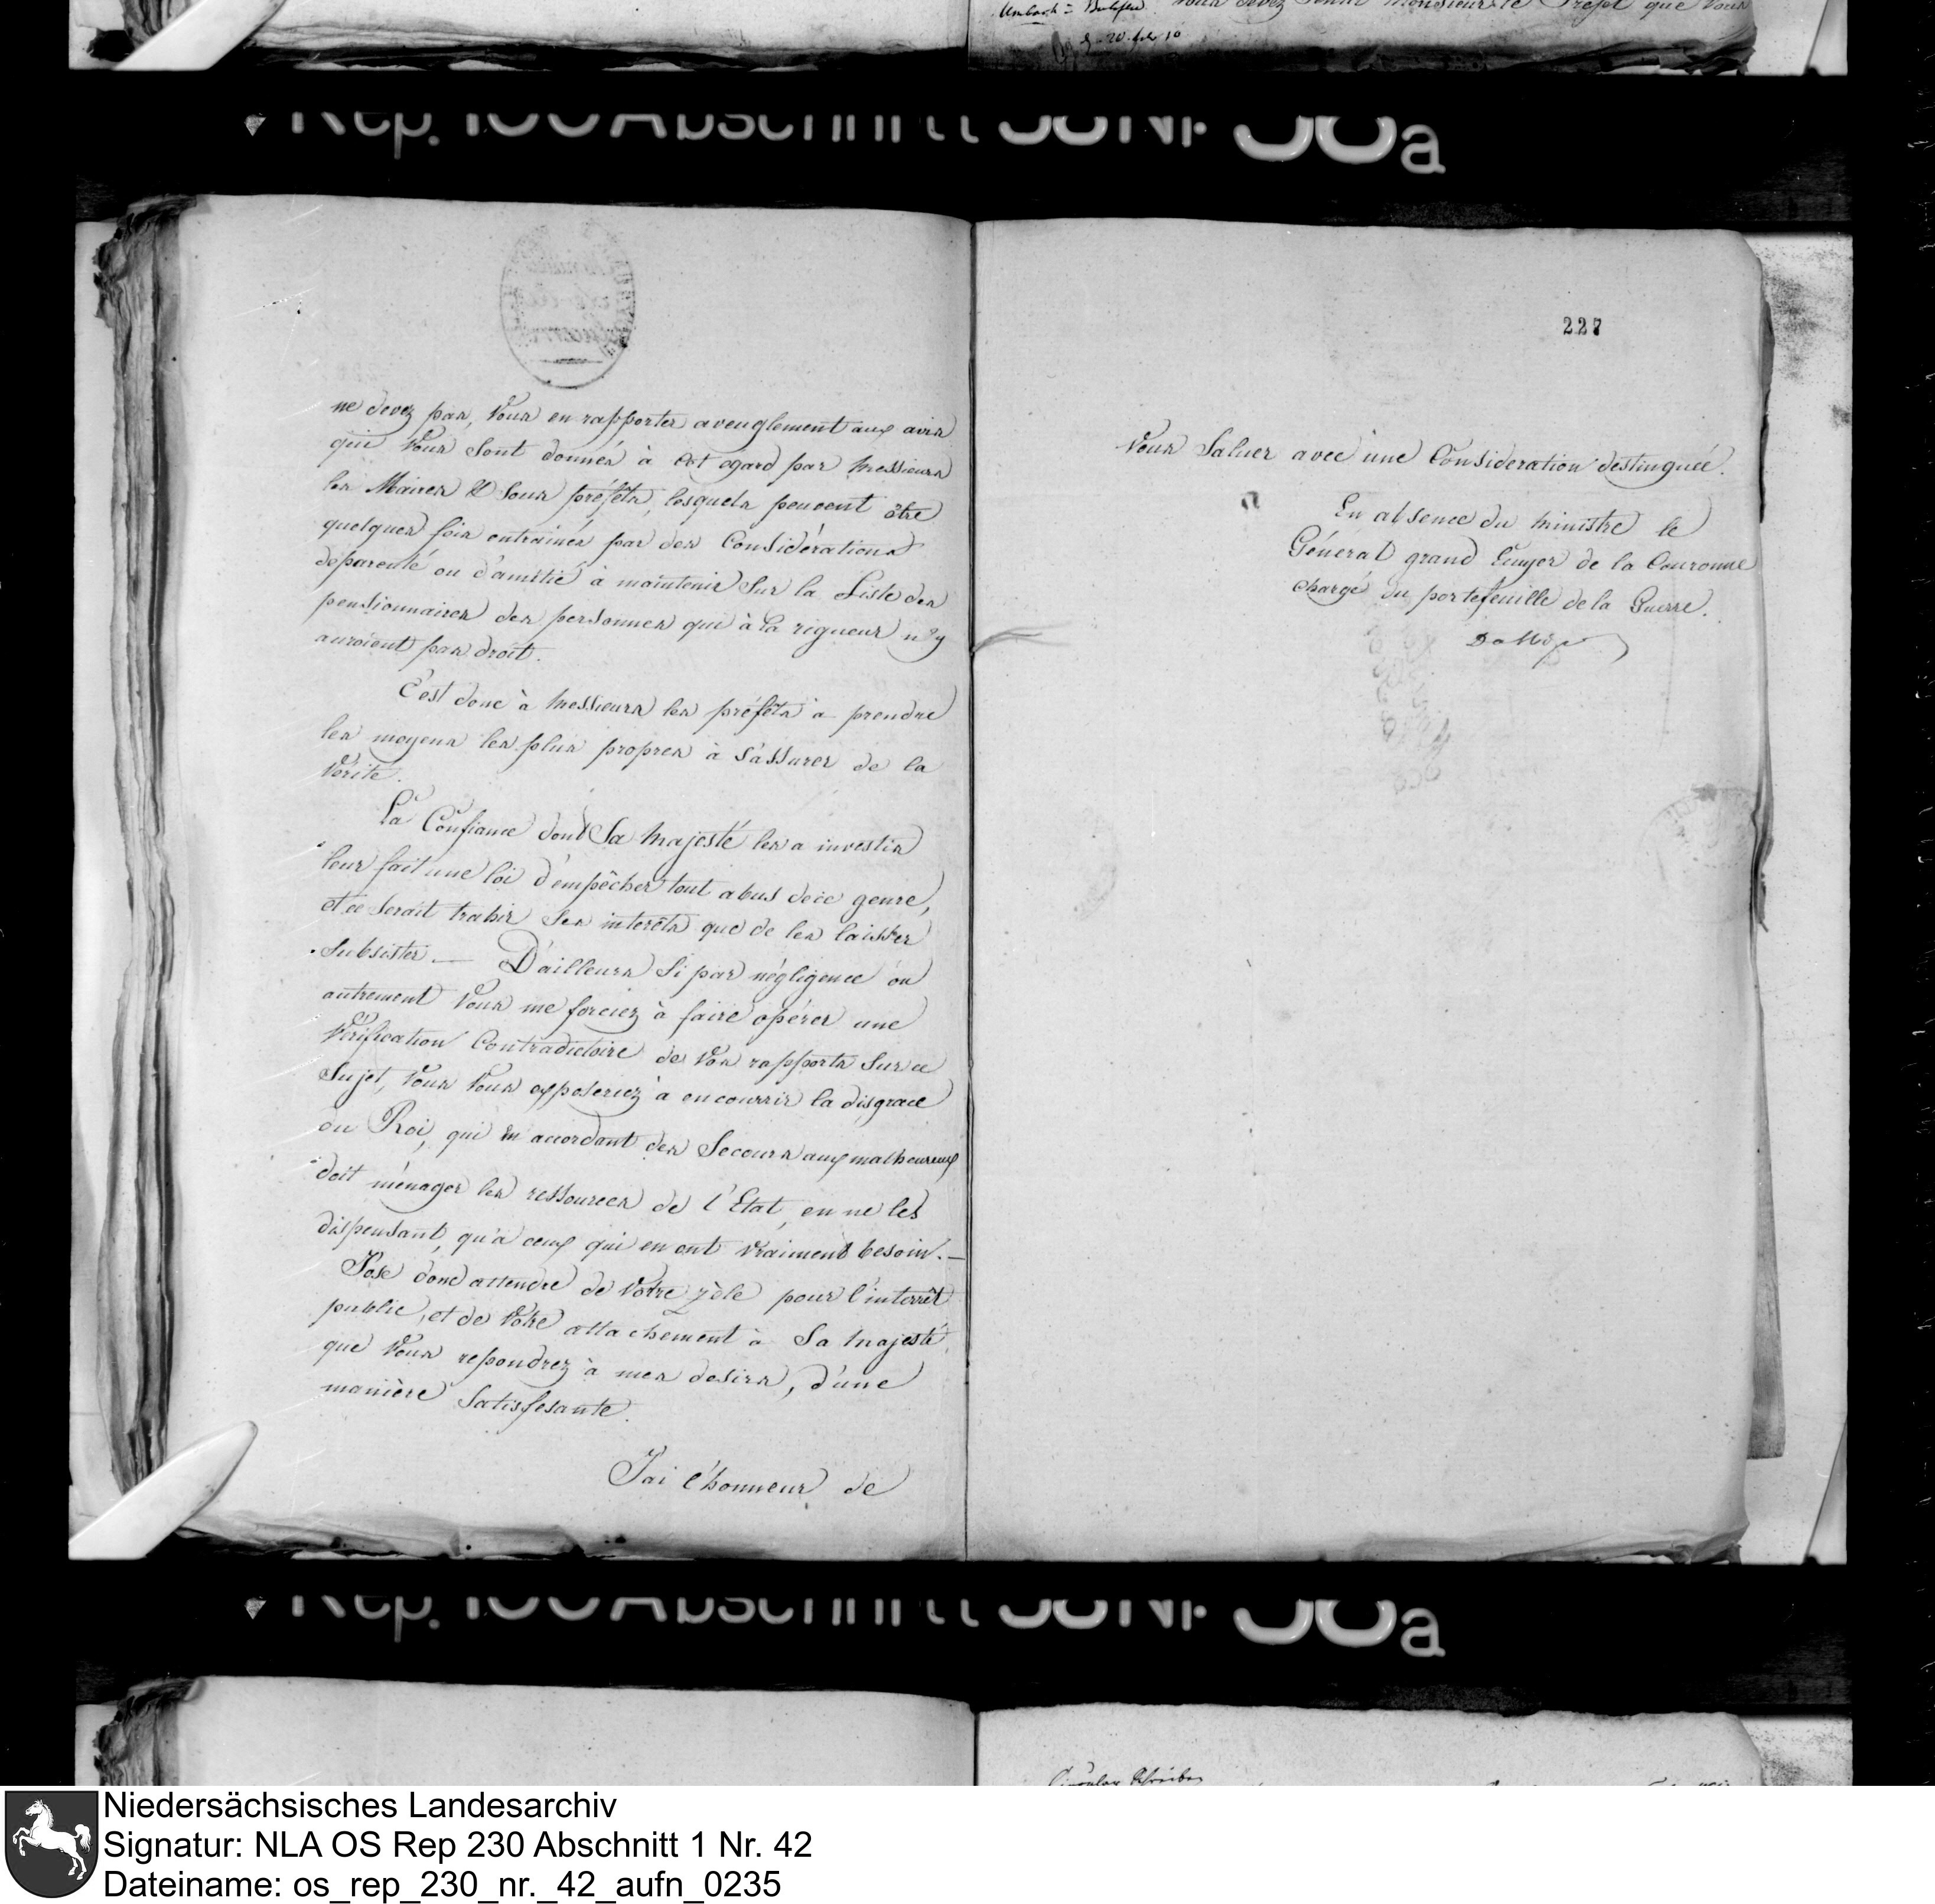 Vous devez sentir Monsieur le Préfet que vous
Rep. 100 Abschnitt 58 Nr. 38a
ne devez pas, Vous en rapporter aveuglement aux avis
qui Vous sont donnés à cet egard par Messieurs
les Maires & sous préfets, lesquels peuvent être
quelques fois entraînés par des Considérations
déparenté ou d'amitié à maintenir sur la Liste des
pensionnaires des personnes qui à la rigueur n'y
auroient pas droit.
C'est donc à Messieurs les préfets à prendre
les moyens les plus propres à s'assurer de la
Vérité.
La Confiance dont Sa Majesté les a investis
leur fait une loi d'empêcher tout abus de ce genre,
et ce serait trahir ses interêts que de les laisser
subsister. — D'ailleurs si par négligence ou
autrement Vous me forciez à faire opérer une
Vérification Contradictoire de Vos rapports sur ce
sujet, Vous Vous exposeriez à encourrir la disgrace
du Roi, qui en accordant des Secours aux malheureux
doit ménager les ressources de l'Etat, en ne les
dispensant, qu'à ceux qui en ont vraiment besoin. —
J'ose donc attendre de Votre zèle pour l'interrêt
public, et de Votre attachement à Sa Majesté,
que Vous repondrez à mes desirs, d'une
manière Satisfesante.
J'ai l'honneur de
227
Vous Saluer avec une Consideration destinguée.
En absence du Ministre le
Géneral grand Ecuyer de la Couronne
chargé du portefeuille de la Guerre.
Rep. 100 Abschnitt 58 Nr. 38a
Circular Schreiben
Niedersächsisches Landesarchiv
Signatur: NLA OS Rep 230 Abschnitt 1 Nr. 42
Dateiname: os_rep_230_nr._42_aufn_0235